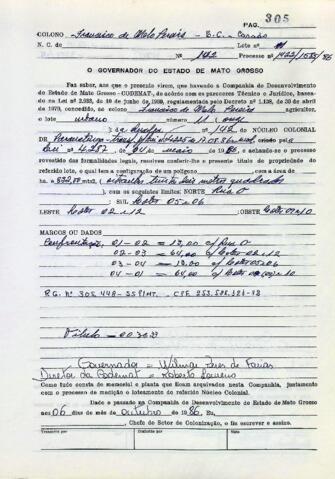 PAG. 305
COLONO Francisco de Melo Pereira - E.C. Casado
N. C. de Lote nº 11
Nº 142 Processo nº 1422/1583/85
O GOVERNADOR DO ESTADO DE MATO GROSSO
Faz saber, aos que o presente virem, que havendo a Companhia de Desenvolvimento
do Estado de Mato Grosso - CODEMAT, de acordo com os pareceres Técnico e Jurídico, basea-
da na Lei nº 2.933, de 10 de junho de 1969, regulamentada pelo Decreto nº 1.138, de 30 de abril
de 1970, concedido, ao colono Francisco de Melo Pereira agricultor,
o lote urbano número 11 (onze)
nº 142 DO NÚCLEO COLONIAL
DE criado pela
Lei nº 4.287 de 24 de maio de 1986, e achando-se o processo
revestido das formalidades legais, resolveu conferir-lhe o presente título de propriedade do
referido lote, o qual tem a configuração de um polígono com a área de
ha 832,00 m2 (oitocentos trinta dois metros quadrados
), com os seguintes limites: NORTE Rua O
SUL Lotes 05 e 06
LESTE Lotes 02 e 12 OESTE Lotes 09 e 10
MARCOS OU DADOS
Confrontação: 01 - 02 = 13,00 c/ Rua O
02 - 03 = 64,00 c/ Lotes 02 e 12
03 - 04 = 13,00 c/ Lotes 05 e 06
04 - 01 = 64,00 c/ Lotes 09 e 10
R.G. Nº 305.448-SSP/MT. - CPF. 253.508.181-78
Título - 003033
Governador = Wilmar Peres de Farias
Diretor da Codemat = Roberto Loureiro
Como tudo consta do memorial e planta que ficam arquivados nesta Companhia, juntamente
com o processo de medição e loteamento do referido Núcleo Colonial.
Dado e passado na Companhia de Desenvolvimento do Estado de Mato Grosso
aos 06 dias do mês de outubro de 1986. Eu,
, Chefe do Setor de Colonização, o fiz escrever e assino.
Transcrito por Conferido por Visto